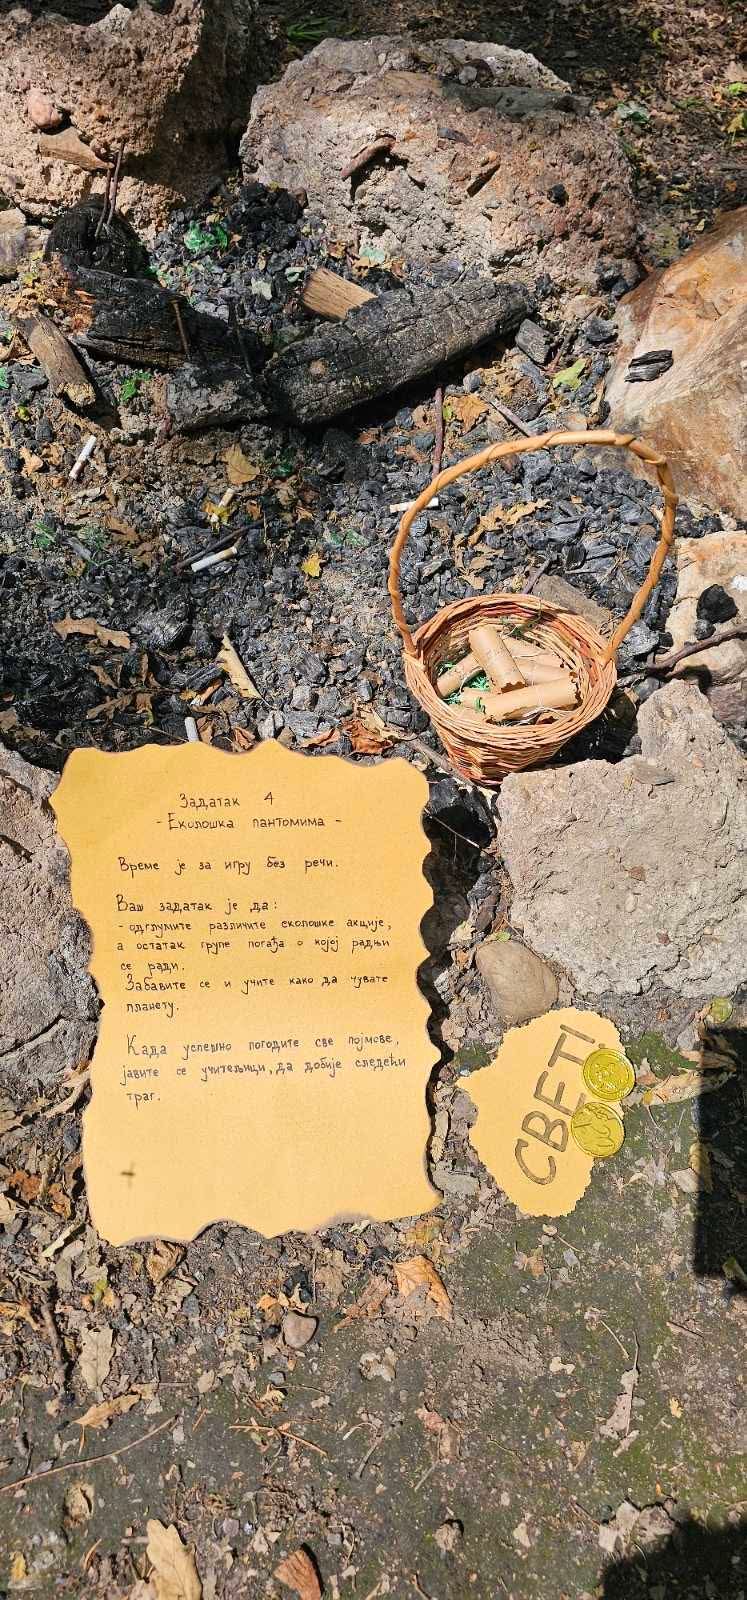 Задатак 4
- Еколошка пантомима -
Време је за игру без речи.
Ваш задатак је да:
- одглумите различите еколошке акције,
а остатак групе погађа о којој радњи
се ради.
Забавите се и учите како да чувате
планету.
Када успешно погодите све појмове,
јавите се учитељици, да добије следећи
траг.
СВЕТ!